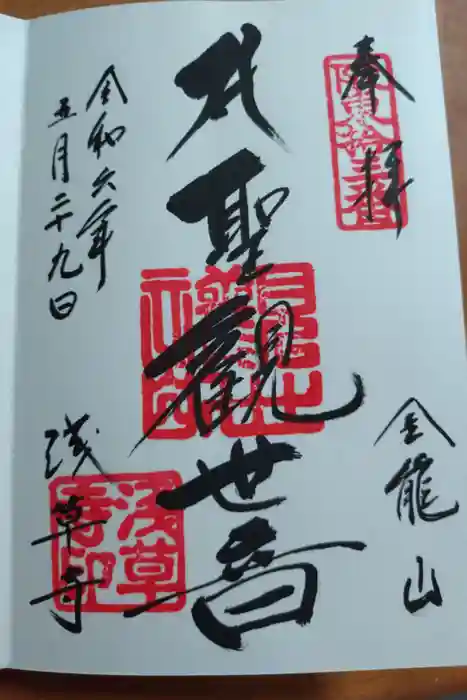 奉拝
坂東拾三番
金龍山
聖観世音
令和六年
五月二十九日
浅草寺